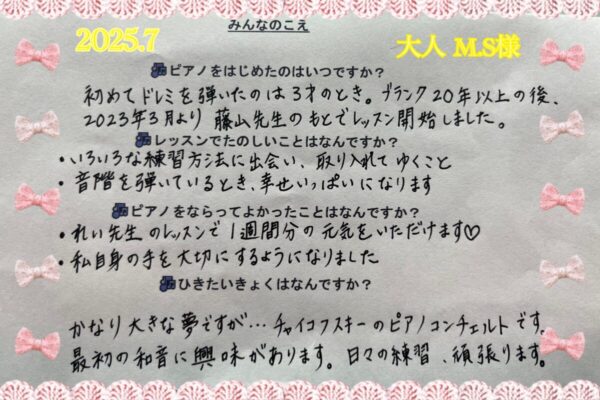 みんなのこえ
2025.7
大人 M.S様
ピアノをはじめたのはいつですか？
初めてドレミを弾いたのは3才のとき。ブランク20年以上の後、
2023年3月より 藤山先生のもとでレッスン開始しました。
レッスンでたのしいことはなんですか？
・いろいろな練習方法に出会い、取り入れてゆくこと
・音階を弾いているとき、幸せいっぱいになります
ピアノをならってよかったことはなんですか？
・れい先生のレッスンで1週間分の元気をいただけます♡
・私自身の手を大切にするようになりました
ひきたいきょくはなんですか？
かなり大きな夢ですが…チャイコフスキーのピアノコンチェルトです。
最初の和音に興味があります。日々の練習、頑張ります。